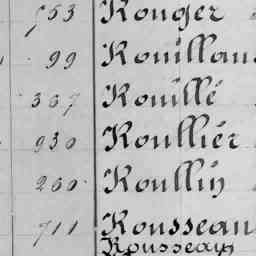 753 Rouger
99 Rouillan
367 Rouillé
930 Roullier
260 Roullin
711 Rousseau
Rousseau